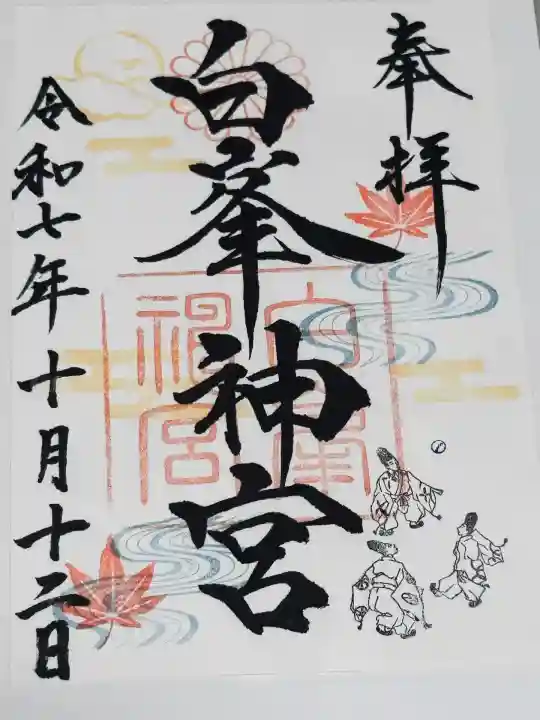 奉拝
白峯神宮
白峯
神宮
令和七年十月十二日